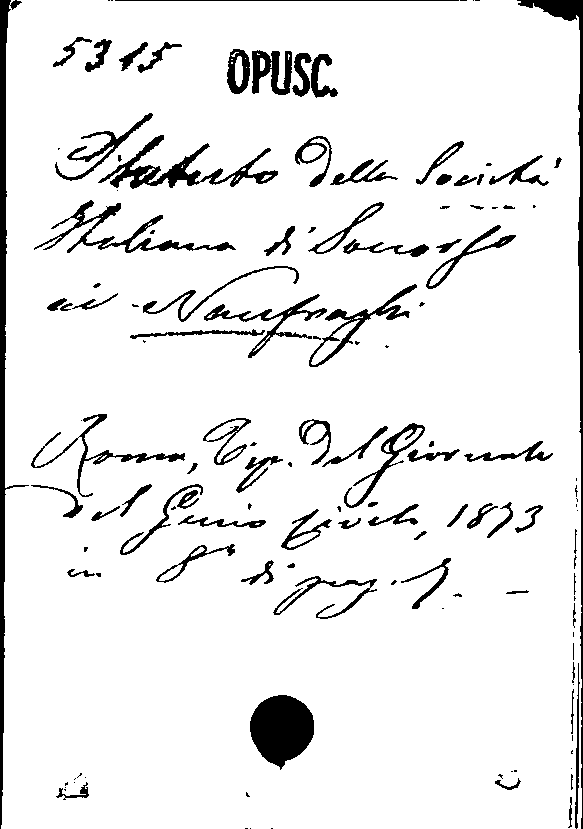 5315 OPUSC.
Statuto della Società
Italiana di Soccorso
ai Naufraghi
Roma, Tip. del Giornale
del Genio Civile, 1873
in 8° di pag.